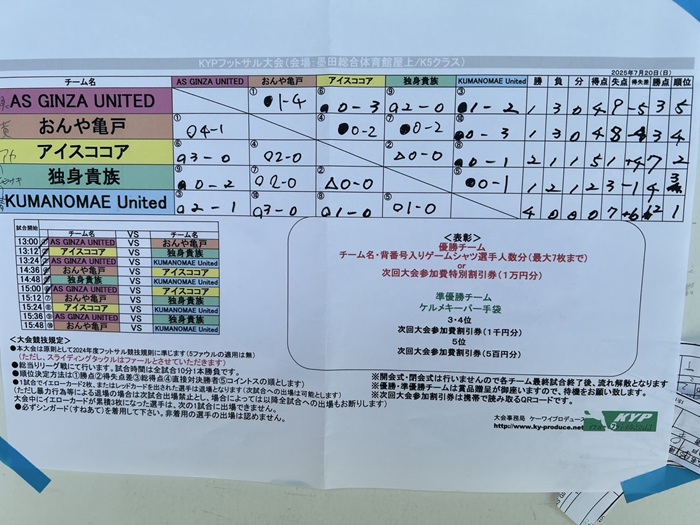 KYPフットサル大会(会場:墨田総合体育館屋上/K5クラス)
2025年7月20日(日)
チーム名 AS GINZA UNITED おんや亀戸 アイスココア 独身貴族 KUMANOMAE United 勝 負 分 得点 失点 得失差 勝点 順位
AS GINZA UNITED ①●1-4 ⑥●0-3 ⑨○2-0 ③●1-2 1 3 0 4 9 -5 3 5
おんや亀戸 ①○4-1 ④●0-2 ⑦●0-2 ⑩●0-3 1 3 0 4 8 -4 3 4
アイスココア ⑥○3-0 ④○2-0 ②△0-0 ⑧●0-1 2 1 1 5 1 +4 7 2
独身貴族 ⑨●0-2 ⑦○2-0 ②△0-0 ⑤●0-1 1 2 1 2 3 -1 4 3
KUMANOMAE United ③○2-1 ⑩○3-0 ⑧○1-0 ⑤○1-0 4 0 0 7 +6 12 1
試合開始 チーム名 VS チーム名
13:00 AS GINZA UNITED VS おんや亀戸
13:12 アイスココア VS 独身貴族
13:24 AS GINZA UNITED VS KUMANOMAE United
14:36 おんや亀戸 VS アイスココア
14:48 独身貴族 VS KUMANOMAE United
15:00 AS GINZA UNITED VS アイスココア
15:12 おんや亀戸 VS 独身貴族
15:24 アイスココア VS KUMANOMAE United
15:36 AS GINZA UNITED VS 独身貴族
15:48 おんや亀戸 VS KUMANOMAE United
<表彰>
優勝チーム
チーム名・背番号入りゲームシャツ選手人数分(最大7枚まで)
or
次回大会参加費特別割引券(1万円分)
準優勝チーム
ケルメキーパー手袋
3・4位
次回大会参加費割引券(1千円分)
5位
次回大会参加費割引券(5百円分)
<大会競技規定>
●本大会は原則として2024年度フットサル競技規則に準じます(5ファウルの適用は無)
(ただし、スライディングタックルはファールとさせていただきます)
●総当りリーグ戦にて行います。試合時間は全試合10分1本勝負です。
●順位決定方法は①勝点②得失点差③総得点④直接対決勝者⑤コイントスの順とします
●1試合でイエローカード2枚、またはレッドカードを出された選手は退場となります(次試合への出場は可能とします)
(ただし暴力行為等による退場の場合は次試合出場禁止とし、場合によっては以降全試合への出場もお断りします)
大会中にイエローカードが累積3枚になった選手は、次の1試合に出場できません。
●必ずシンガード(すねあて)を着用して下さい。非着用の選手の出場は認めません。
※開会式・閉会式は行いませんので各チーム最終試合終了後、流れ解散となります
※優勝・準優勝チームは賞品贈呈が御座いますので、待機をお願い致します。
※次回大会参加割引券は携帯で読み取るQRコードです。
大会事務局 ケーワイプロデュース
http://www.ky-produce.net
KYP